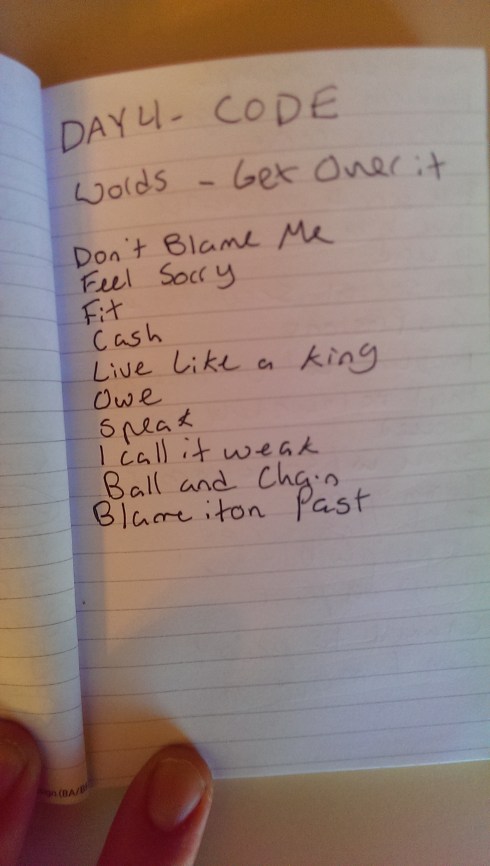 DAY 4 - CODE
Words - Get Over it
Don't Blame Me
Feel Sorry
Fit
Cash
Live Like a king
Owe
Speak
I call it weak
Ball and Chain
Blame it on Past
(BA/B